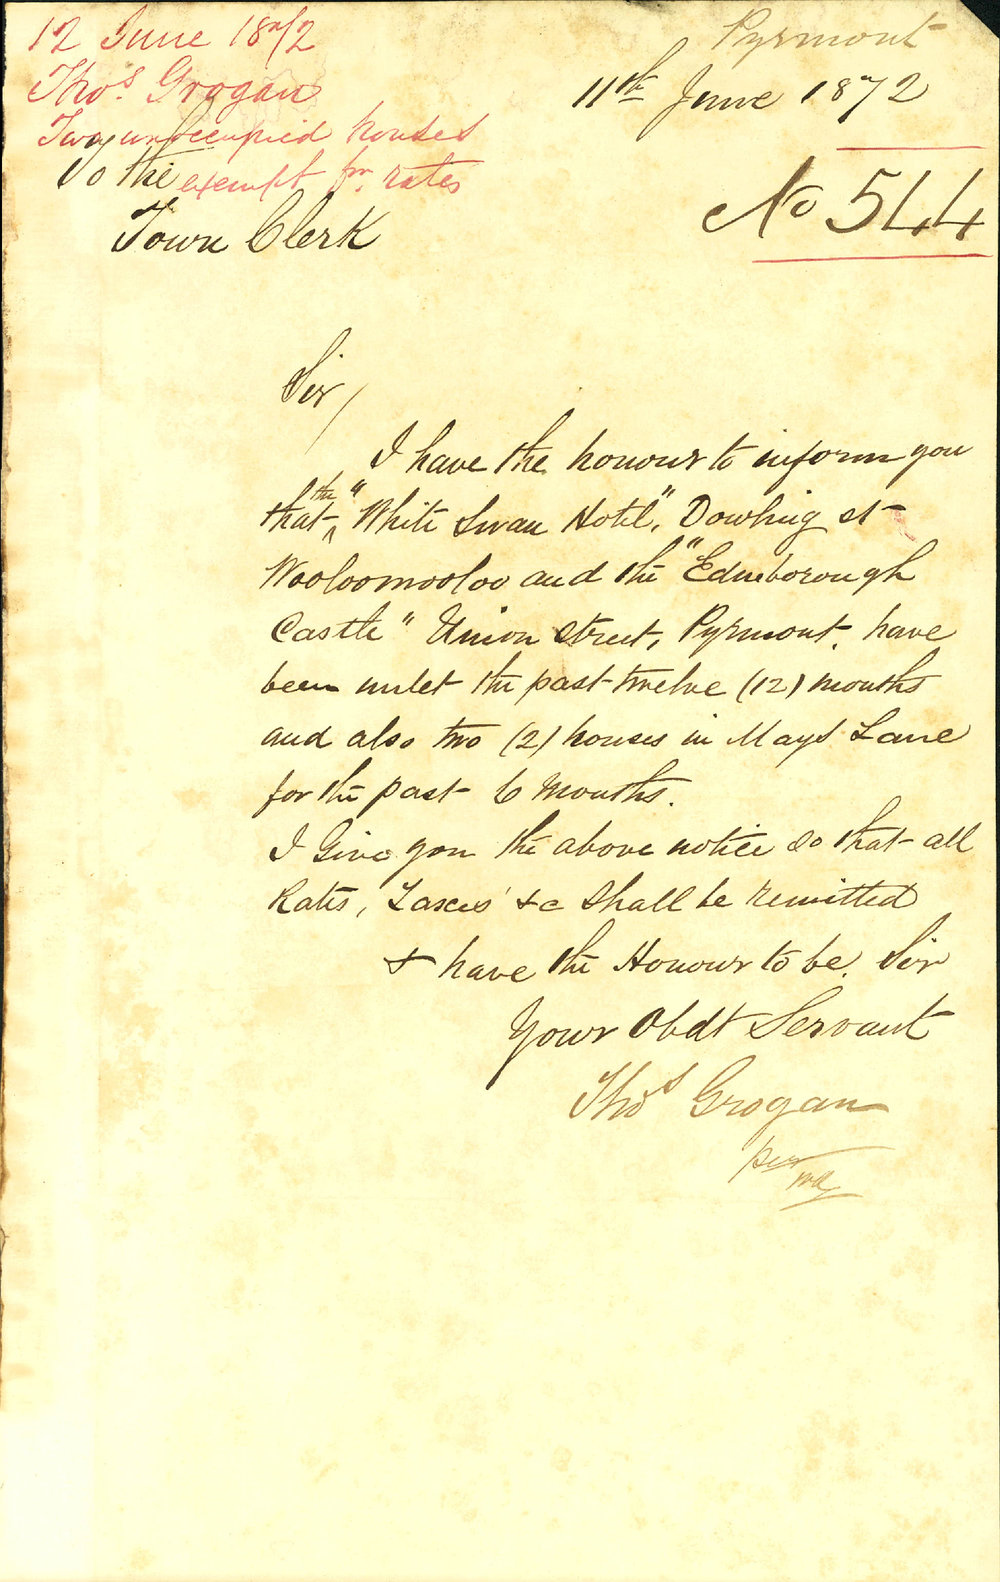 12 June 1872
Thos. Grogan
Two unoccupied houses
exempt fm. rates
Pyrmont
11th June 1872
No 544
To the
Town Clerk
Sir,
I have the honour to inform you
that the "White Swan Hotel", Dowling st
Wooloomooloo and the "Edinborough
Castle" Union Street, Pyrmont, have
been unlet the past twelve (12) months
and also two (2) houses in Mays Lane
for the past 6 months.
I Give you the above notice so that all
Rates, Taxes &c shall be remitted
& have the Honour to be, Sir
Your Obdt Servant
Thos Grogan
per